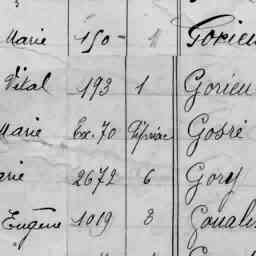 Marie 150 1 Gorieu
Vital 193 1 Gorieu
Marie Ex. 70 Gosré
arie 2672 6 Gory
Eugène 1019 8 Goualin